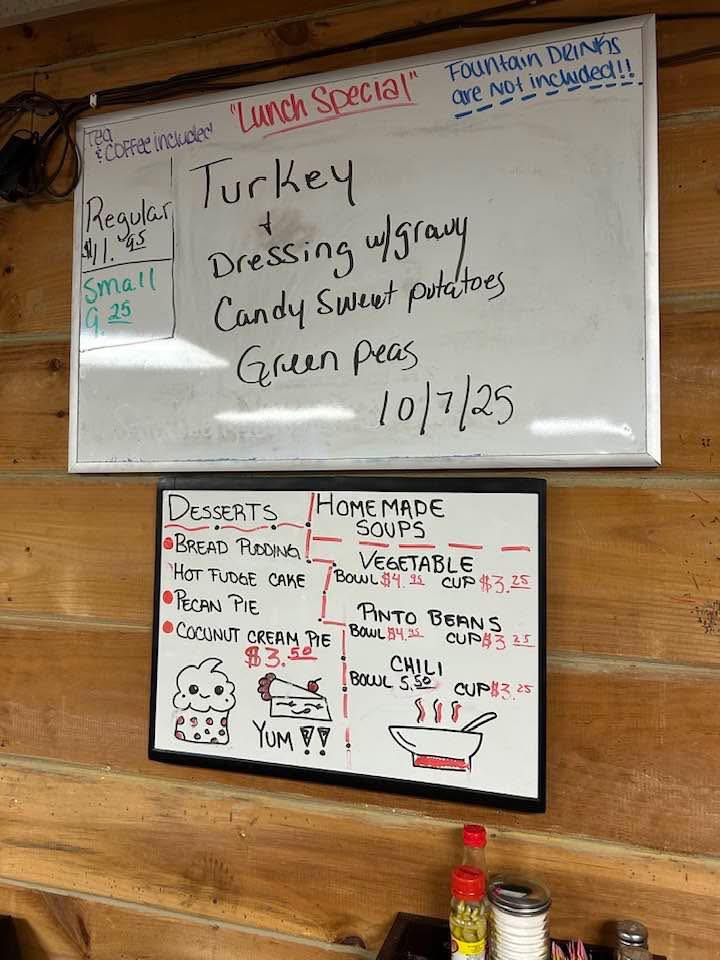 Tea
& Coffee included
"Lunch Special"
Fountain Drinks
are Not included!!
Regular
$11.95
Small
9.25
Turkey
+
Dressing w/gravy
Candy Sweet potatoes
Green Peas
10/7/25
Desserts
Bread Pudding
Hot Fudge Cake
Pecan Pie
Cocunut Cream Pie
$3.50
Yum!!
Homemade
Soups
Vegetable
Bowl $4.95 Cup $3.25
Pinto Beans
Bowl $4.95 Cup $3.25
Chili
Bowl 5.50 Cup $3.25